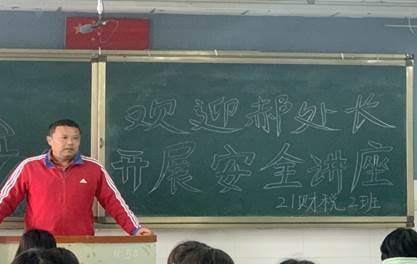 欢迎郝处长
开展安全讲座
21财税2班